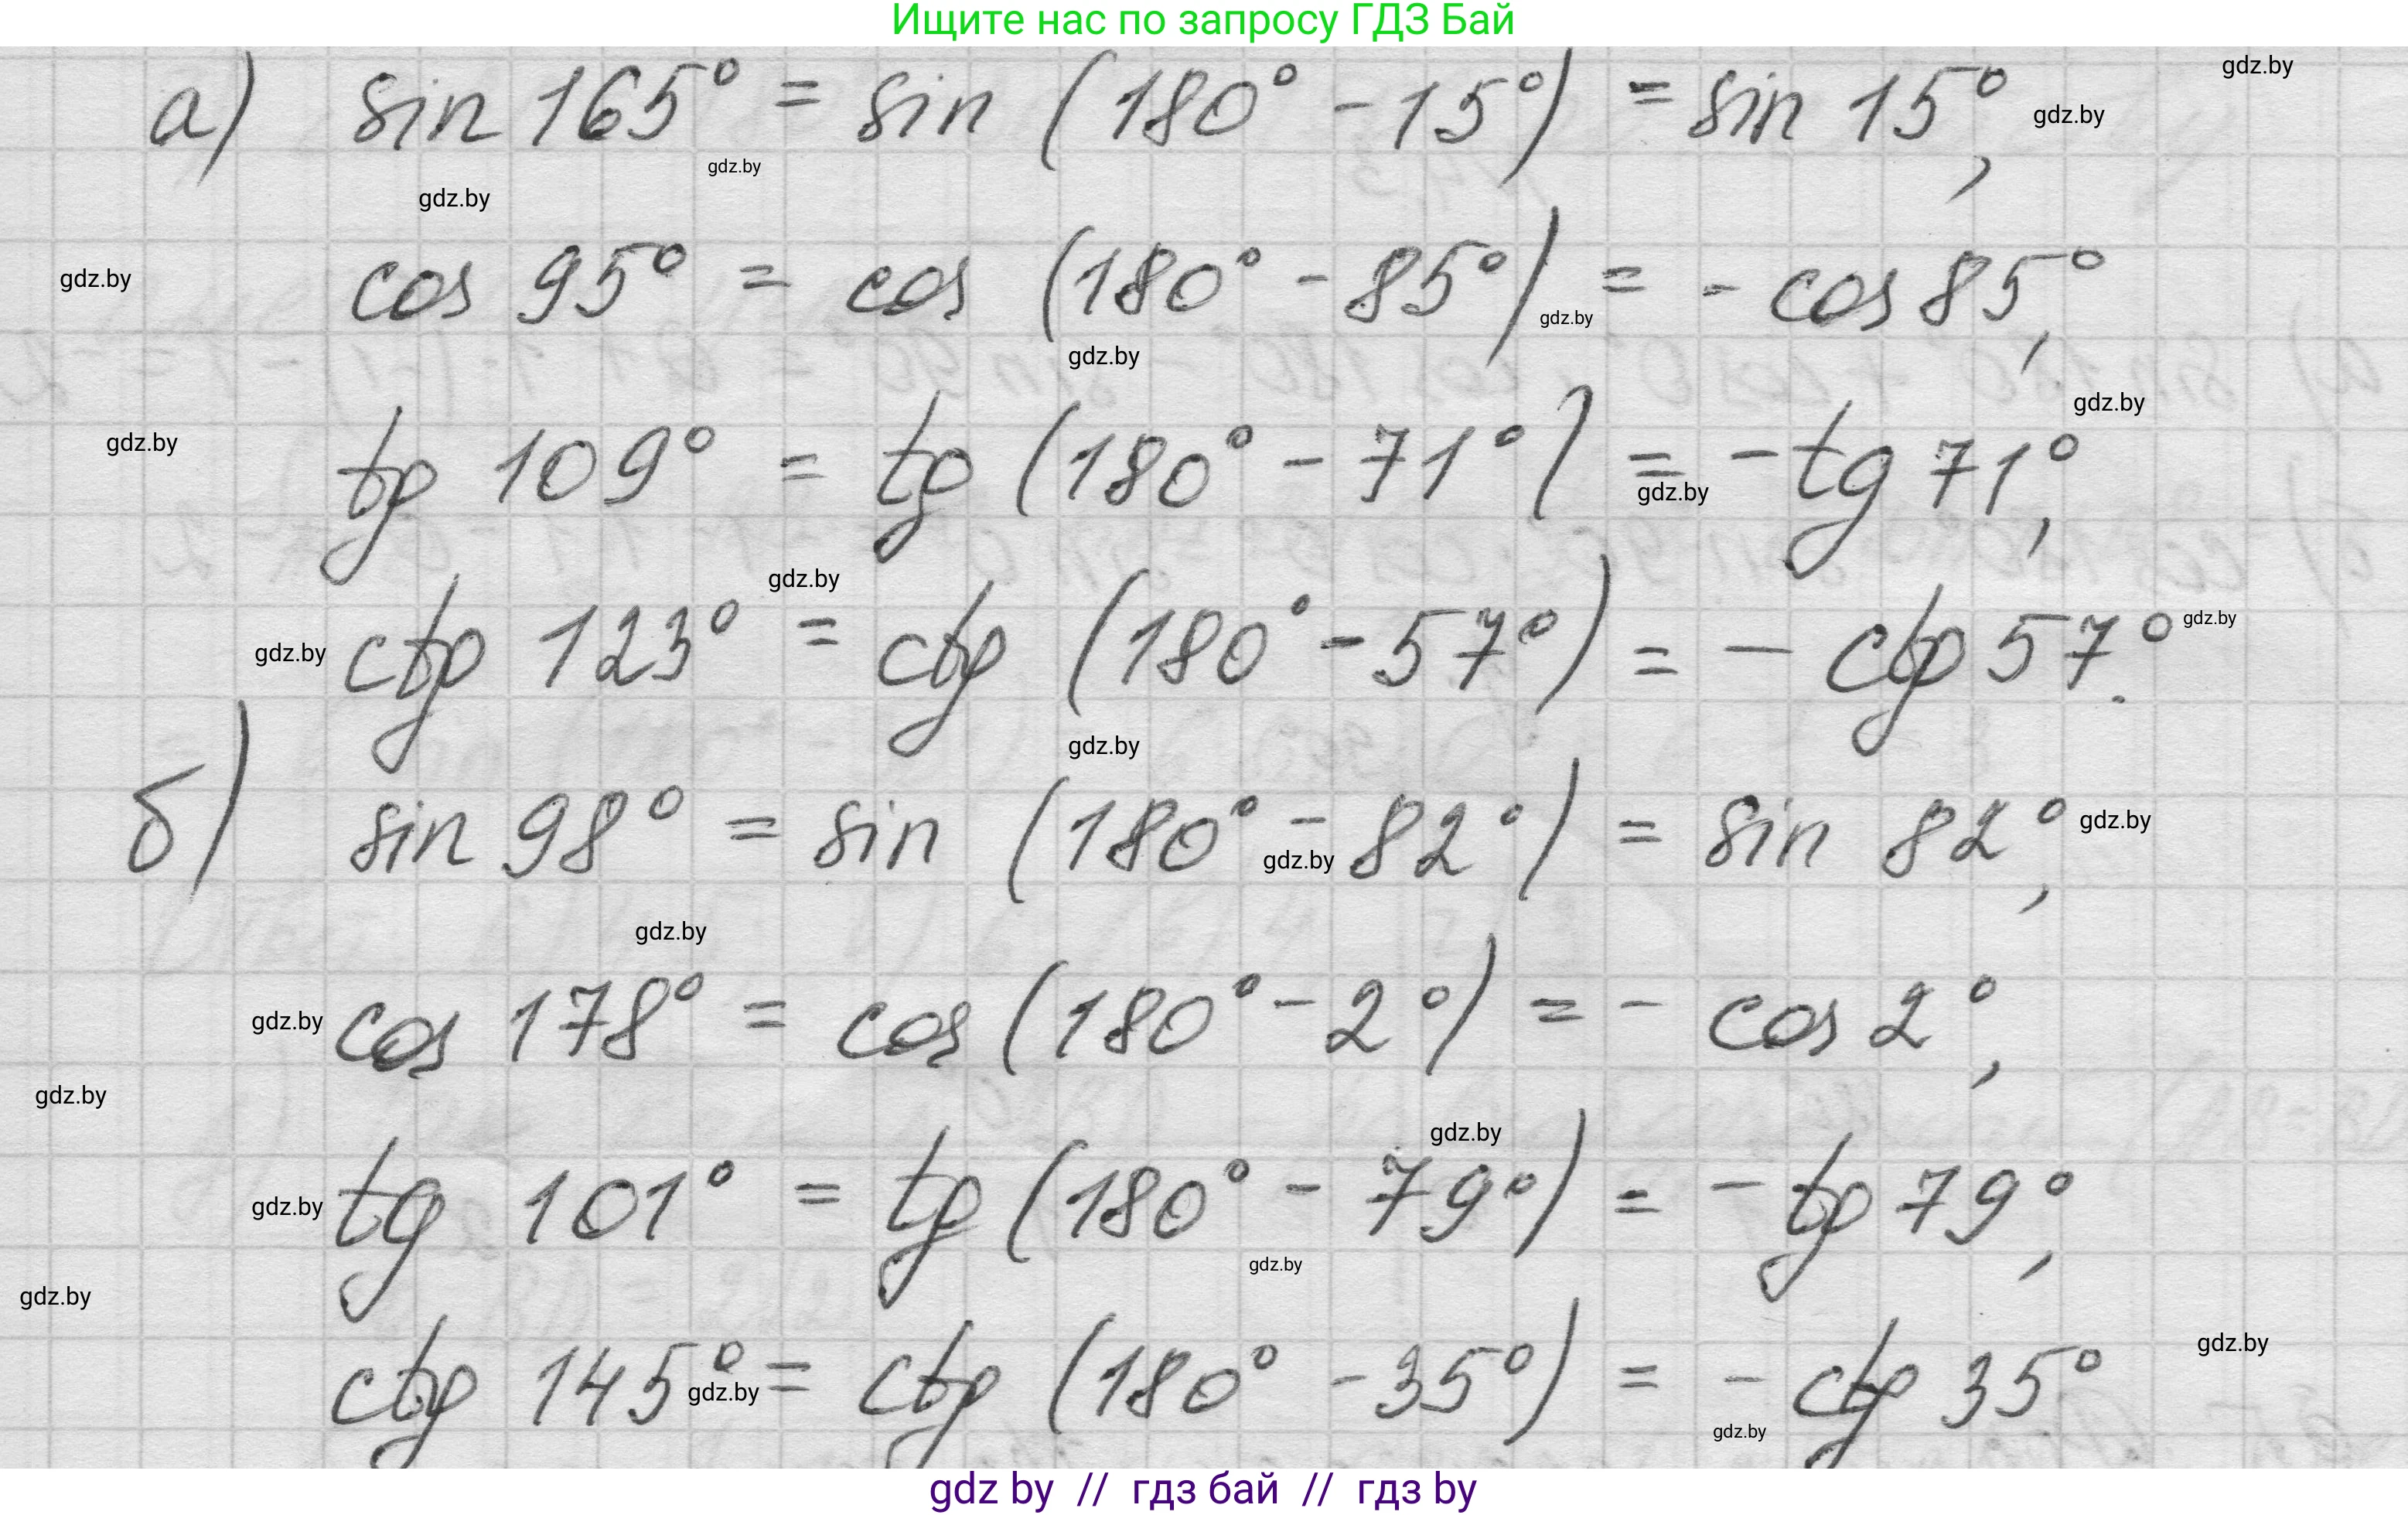 Ищите нас по запросу ГДЗ Бай
gdz.by
а) sin 165° = sin (180° - 15°) = sin 15°,
gdz.by
gdz.by
gdz.by
gdz.by
cos 95° = cos (180° - 85°) = - cos 85°,
gdz.by
gdz.by
gdz.by
gdz.by
tg 109° = tg (180° - 71°) = - tg 71°,
gdz.by
gdz.by
gdz.by
ctg 123° = ctg (180° - 57°) = - ctg 57°.
gdz.by
gdz.by
б) sin 98° = sin (180° - 82°) = sin 82°,
gdz.by
gdz.by
gdz.by
gdz.by
cos 178° = cos (180° - 2°) = - cos 2°,
gdz.by
gdz.by
gdz.by
tg 101° = tg (180° - 79°) = - tg 79°,
gdz.by
gdz.by
gdz.by
ctg 145° = ctg (180° - 35°) = - ctg 35°
gdz.by
gdz.by
gdz by // гдз бай // гдз by